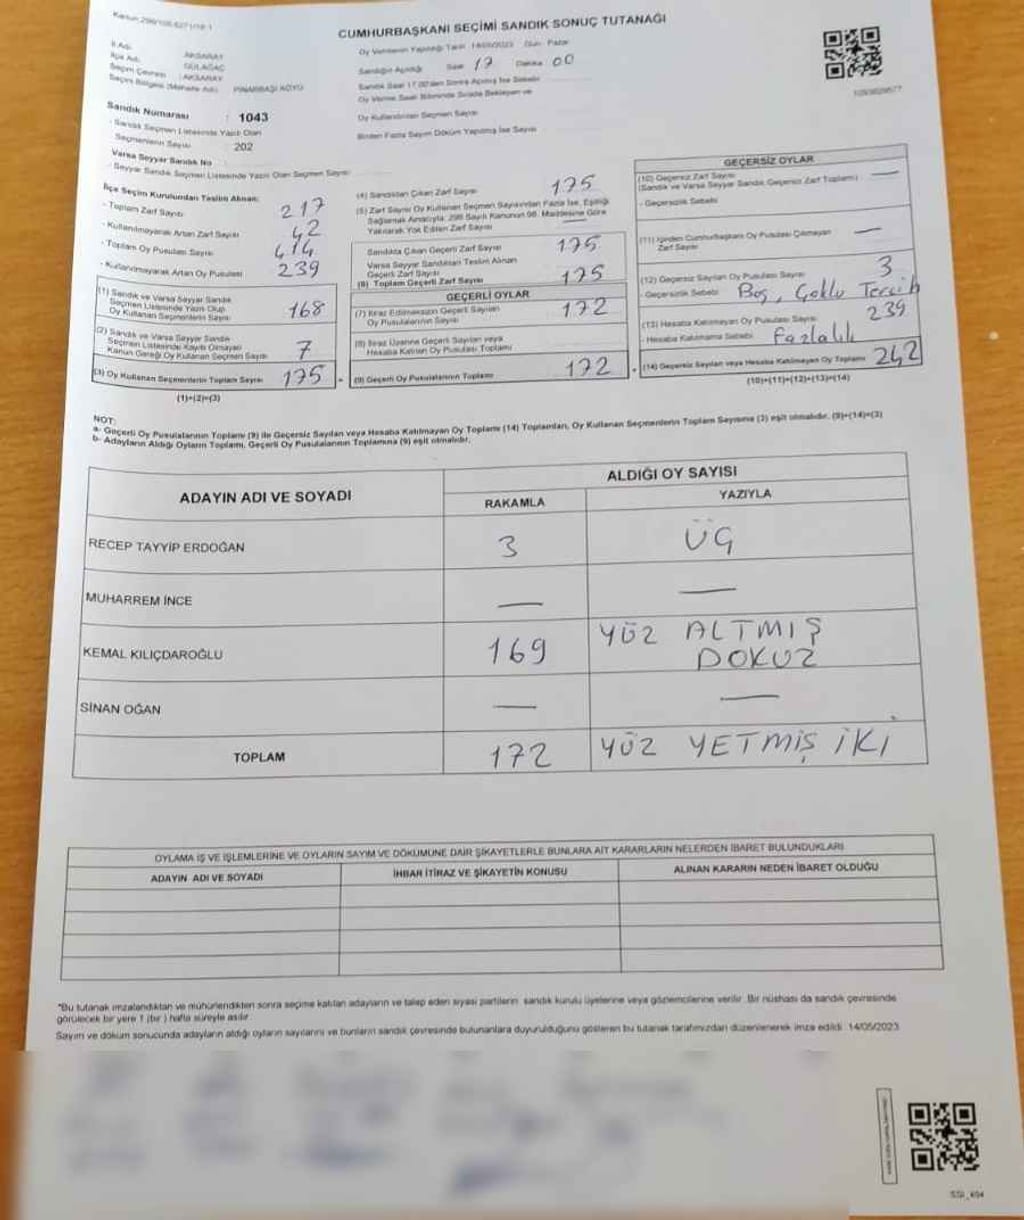 CUMHURBAŞKANI SEÇİMİ SANDIK SONUÇ TUTANAĞI
Oy Vermenin Yapıldığı Tarih 14/05/2023 Gün: Pazar
İl Adı : AKSARAY
İlçe Adı : GÜLAĞAÇ
Seçim Çevresi : AKSARAY
Seçim Bölgesi (Mahalle Adı) : PINARBAŞI KÖYÜ
Sandığın Açıldığı Saat 17 Dakika 00
Sandık Saat 17.00'den Sonra Açılmış İse Sebebi
Oy Verme Saati Bitiminde Sırada Bekleyen ve
Oy Kullandırılan Seçmen Sayısı
Birden Fazla Sayım Döküm Yapılmış İse Sayısı
Sandık Numarası : 1043
- Sandık Seçmen Listesinde Yazılı Olan
Seçmenlerin Sayısı : 202
Varsa Seyyar Sandık No
- Seyyar Sandık Seçmen Listesinde Yazılı Olan Seçmen Sayısı
İlçe Seçim Kurulundan Teslim Alınan:
- Toplam Zarf Sayısı 217
- Kullanılmayarak Artan Zarf Sayısı 42
- Toplam Oy Pusulası Sayısı 414
- Kullanılmayarak Artan Oy Pusulası 239
(1) Sandık ve Varsa Seyyar Sandık
Seçmen Listesinde Yazılı Olup
Oy Kullanan Seçmenlerin Sayısı 168
(2) Sandık ve Varsa Seyyar Sandık
Seçmen Listesinde Kayıtlı Olmayan
Kanun Gereği Oy Kullanan Seçmen Sayısı 7
(3) Oy Kullanan Seçmenlerin Toplam Sayısı 175
(1)+(2)=(3)
(4) Sandıktan Çıkan Zarf Sayısı 175
(5) Zarf Sayısı Oy Kullanan Seçmen Sayısından Fazla İse, Eşitliği
Sağlamak Amacıyla, 298 Sayılı Kanunun 98. Maddesine Göre
Yakılarak Yok Edilen Zarf Sayısı —
Sandıkta Çıkan Geçerli Zarf Sayısı 175
Varsa Seyyar Sandıktan Teslim Alınan
Geçerli Zarf Sayısı
(6) Toplam Geçerli Zarf Sayısı 175
GEÇERLİ OYLAR
(7) İtiraz Edilmeksizin Geçerli Sayılan
Oy Pusulalarının Sayısı 172
(8) İtiraz Üzerine Geçerli Sayılan veya
Hesaba Katılan Oy Pusulası Toplamı
(9) Geçerli Oy Pusulalarının Toplamı 172
GEÇERSİZ OYLAR
(10) Geçersiz Zarf Sayısı
(Sandık ve Varsa Seyyar Sandık Geçersiz Zarf Toplamı) —
- Geçersizlik Sebebi
(11) İçinden Cumhurbaşkanı Oy Pusulası Çıkmayan
Zarf Sayısı —
(12) Geçersiz Sayılan Oy Pusulası Sayısı 3
- Geçersizlik Sebebi Boş, Çoklu Tercih
(13) Hesaba Katılmayan Oy Pusulası Sayısı 239
- Hesaba Katılmama Sebebi Fazlalık
(14) Geçersiz Sayılan veya Hesaba Katılmayan Oy Toplamı 242
(10)+(11)+(12)+(13)=(14)
NOT:
a- Geçerli Oy Pusulalarının Toplamı (9) ile Geçersiz Sayılan veya Hesaba Katılmayan Oy Toplamı (14) Toplamları, Oy Kullanan Seçmenlerin Toplam Sayısına (3) eşit olmalıdır. (9)+(14)=(3)
b- Adayların Aldığı Oyların Toplamı, Geçerli Oy Pusulalarının Toplamına (9) eşit olmalıdır.
ADAYIN ADI VE SOYADI
ALDIĞI OY SAYISI
RAKAMLA YAZIYLA
RECEP TAYYİP ERDOĞAN 3 ÜÇ
MUHARREM İNCE — —
KEMAL KILIÇDAROĞLU 169 YÜZ ALTMIŞ
DOKUZ
SİNAN OĞAN — —
TOPLAM 172 YÜZ YETMİŞ İKİ
OYLAMA İŞ VE İŞLEMLERİNE VE OYLARIN SAYIM VE DÖKÜMÜNE DAİR ŞİKAYETLERLE BUNLARA AİT KARARLARIN NELERDEN İBARET BULUNDUKLARI
ADAYIN ADI VE SOYADI İHBAR İTİRAZ VE ŞİKAYETİN KONUSU ALINAN KARARIN NEDEN İBARET OLDUĞU
*Bu tutanak imzalandıktan ve mühürlendikten sonra seçime katılan adayların ve talep eden siyasi partilerin sandık kurulu üyelerine veya gözlemcilerine verilir. Bir nüshası da sandık çevresinde
görülecek bir yere 1 (bir) hafta süreyle asılır.
Sayım ve döküm sonucunda adayların aldığı oyların sayılarını ve bunların sandık çevresinde bulunanlara duyurulduğunu gösteren bu tutanak tarafımızdan düzenlenerek imza edildi. 14/05/2023